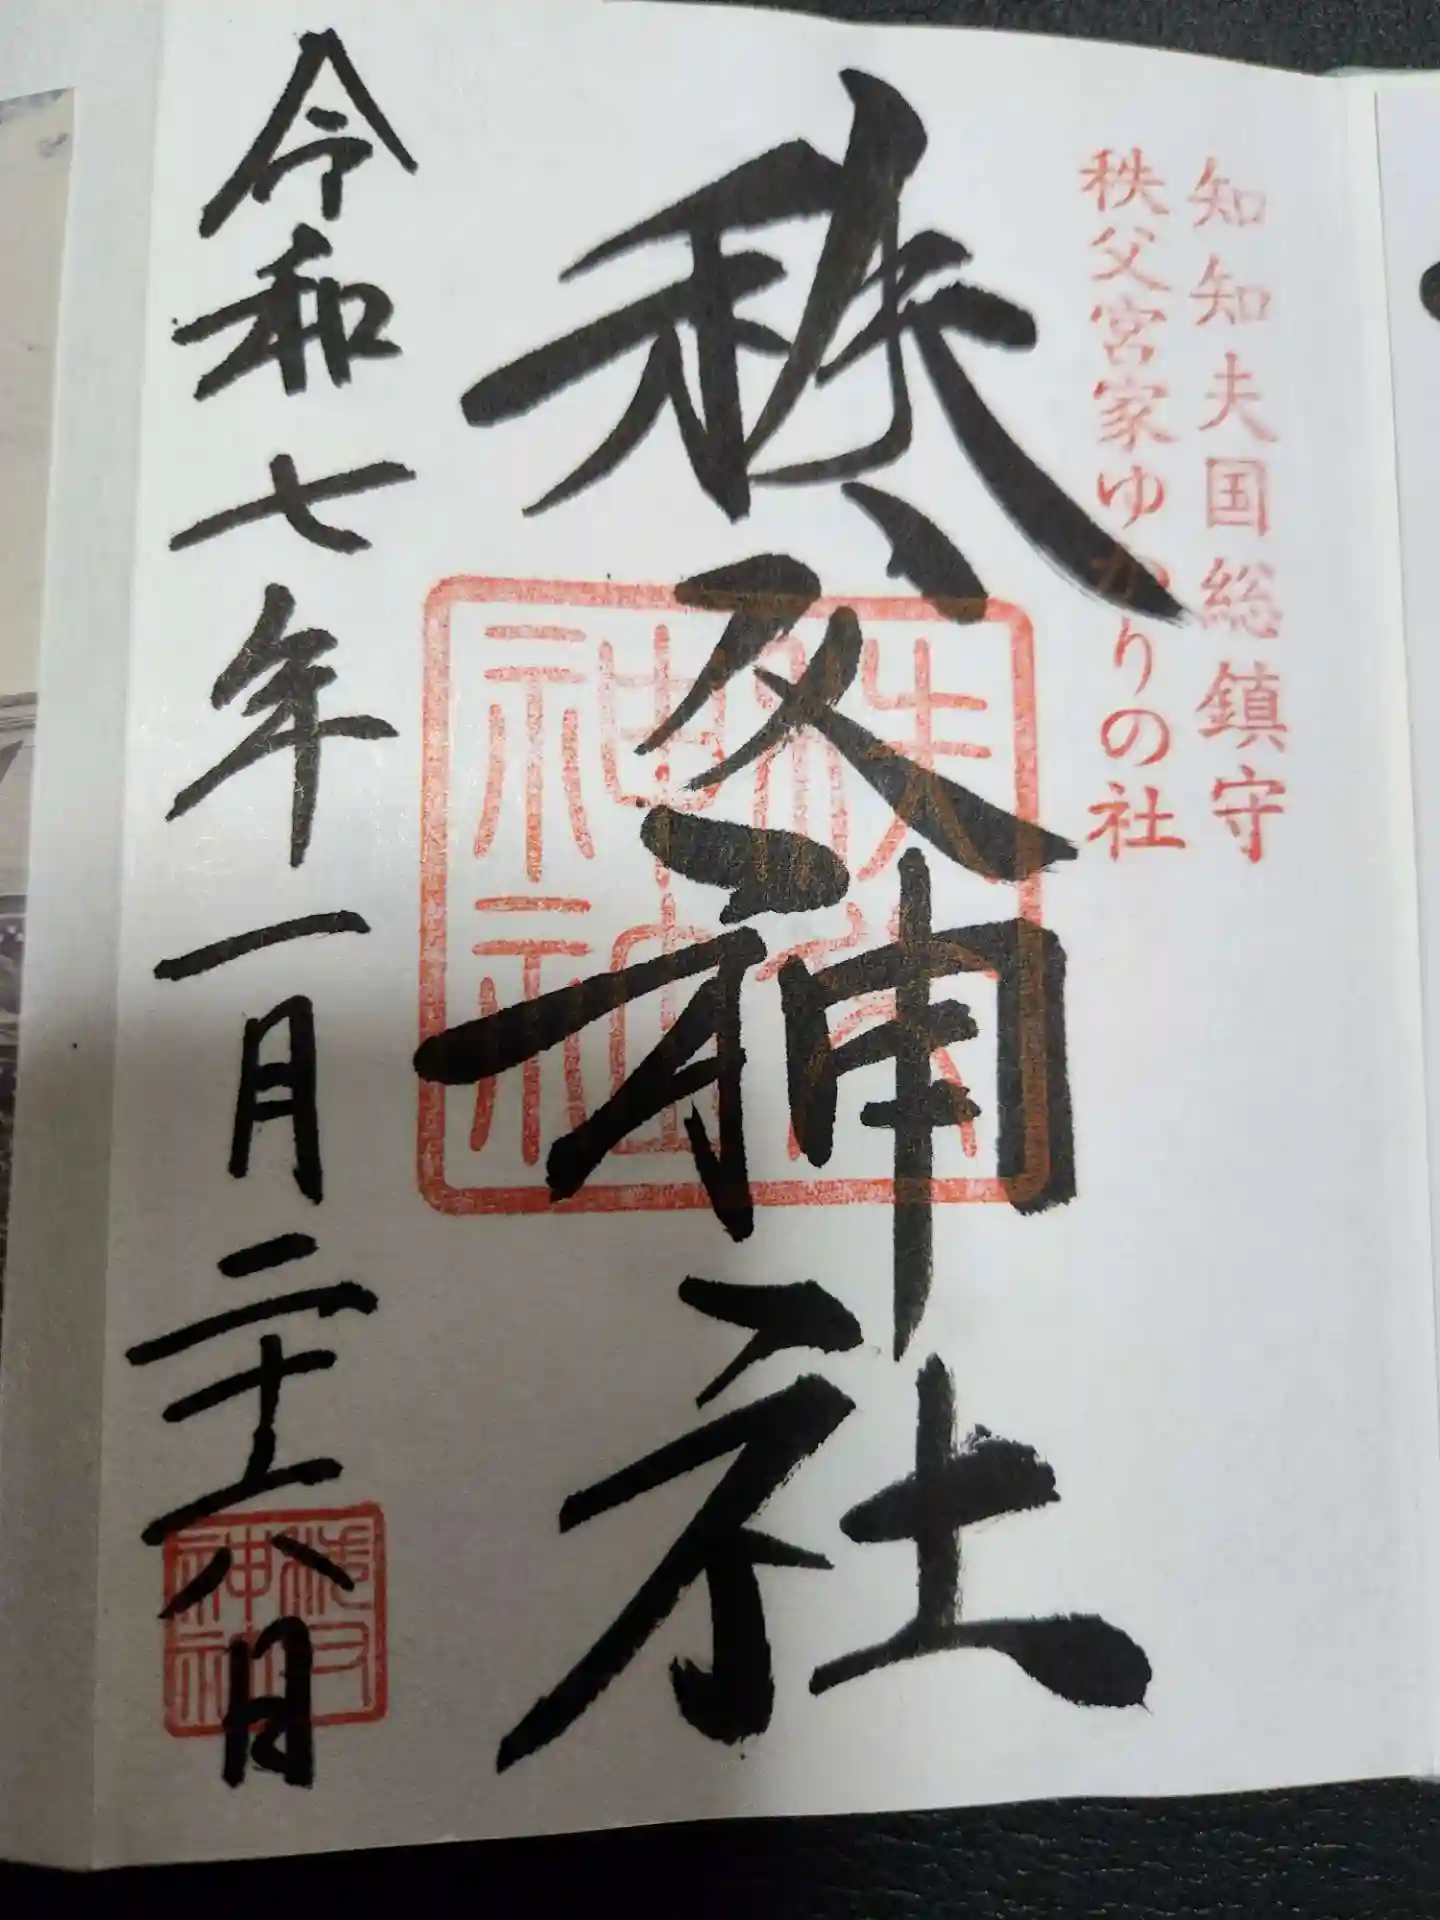 知知夫国総鎮守
秩父宮家ゆかりの社
秩父神社
秩父神社
令和七年一月二十六日
秩父神社